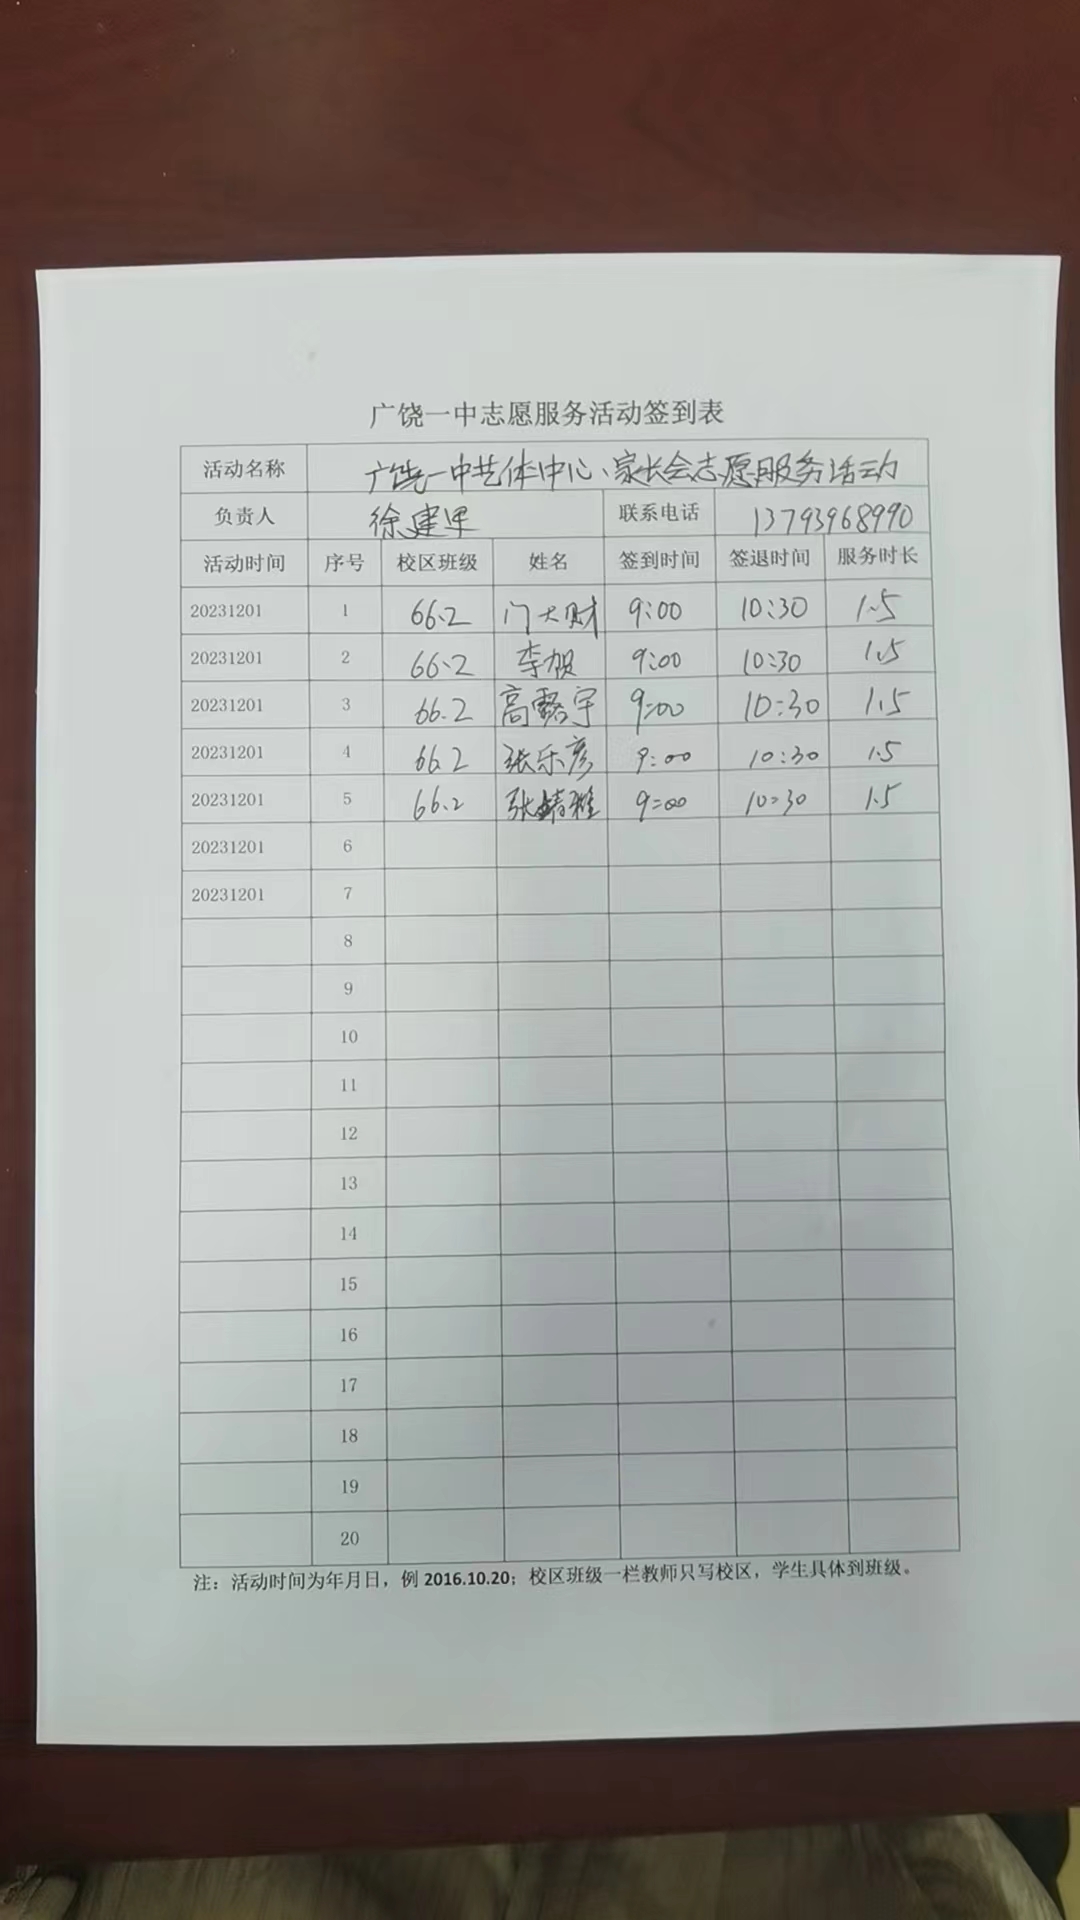 广饶一中志愿服务活动签到表
活动名称 广饶一中艺体中心、家长会志愿服务活动
负责人 徐建军 联系电话 13793968990
活动时间 序号 校区班级 姓名 签到时间 签退时间 服务时长
20231201 1 66.2 门大财 9:00 10:30 1.5
20231201 2 66.2 李贺 9:00 10:30 1.5
20231201 3 66.2 高露宇 9:00 10:30 1.5
20231201 4 66.2 张乐彦 9:00 10:30 1.5
20231201 5 66.2 张婧雅 9:00 10:30 1.5
20231201 6
20231201 7
8
9
10
11
12
13
14
15
16
17
18
19
20
注：活动时间为年月日，例 2016.10.20；校区班级一栏教师只写校区，学生具体到班级。